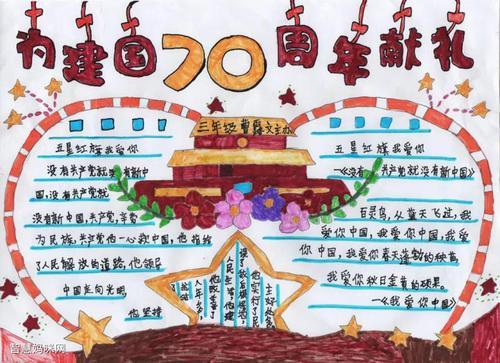 为建国70周年献礼
三年级
主办
五星红旗我爱你
没有共产党就没有新中
国,没有共产党就
没有新中国,共产党,辛劳
为民族,共产党他一心救中国,他指给
了人民解放的道路,他领导
中国走向光明,
他坚持
了抗战
八年多,
他改善了
人民生活,他建
设了敌后根据地,
他实行了民
主好处多
五星红旗我爱你
—《没有共产党就没有新中国》
百灵鸟,从蓝天飞过,我
爱你中国,我爱你中国,我爱
你中国,我爱你春天蓬勃的秧苗,
我爱你秋日金黄的硕果。
—《我爱你中国》
智慧妈咪网